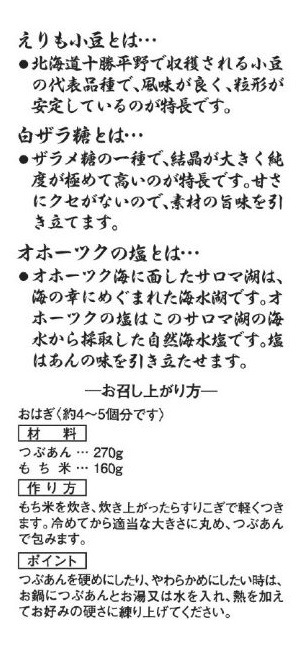 えりも小豆とは…
●北海道十勝平野で収穫される小豆
の代表品種で、風味が良く、粒形が
安定しているのが特長です。
白ザラ糖とは…
●ザラメ糖の一種で、結晶が大きく純
度が極めて高いのが特長です。甘さ
にクセがないので、素材の旨味を引
き立てます。
オホーツクの塩とは…
●オホーツク海に面したサロマ湖は、
海の幸にめぐまれた海水湖です。オ
ホーツクの塩はこのサロマ湖の海
水から採取した自然海水塩です。塩
はあんの味を引き立たせます。
―お召し上がり方―
おはぎ〈約4〜5個分です〉
材料
つぶあん…270g
もち米…160g
作り方
もち米を炊き、炊き上がったらすりこぎで軽くつき
ます。冷めてから適当な大きさに丸め、つぶあん
で包みます。
ポイント
つぶあんを硬めにしたり、やわらかめにしたい時は、
お鍋につぶあんとお湯又は水を入れ、熱を加え
てお好みの硬さに練り上げてください。